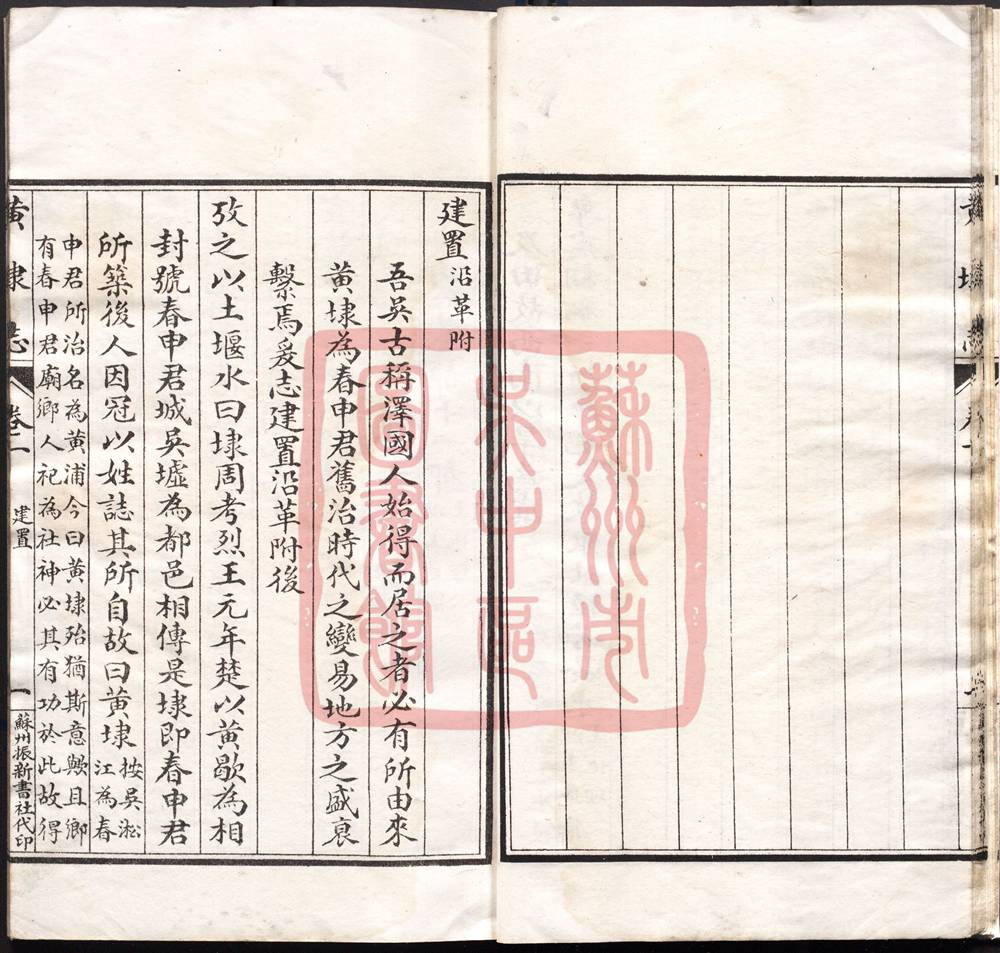 黃埭志
建置沿革附
吾吳古稱澤國人始得而居之者必有所由來
黃埭為春申君舊治時代之變易地方之盛衰
繫焉爰志建置沿革附後
攷之以土堰水曰埭周考烈王元年楚以黃歇為相
封號春申君城吳墟為都邑相傳是埭即春申君
所築後人因冠以姓誌其所自故曰黃埭
按吳淞
江為春
申君所治名為黃浦今曰黃埭殆猶斯意歟且鄉
有春申君廟鄉人祀為社神必其有功於此故得
黃埭志
卷二
建置
一
蘇州振新書社代印
蘇州市
吳中區
圖書館